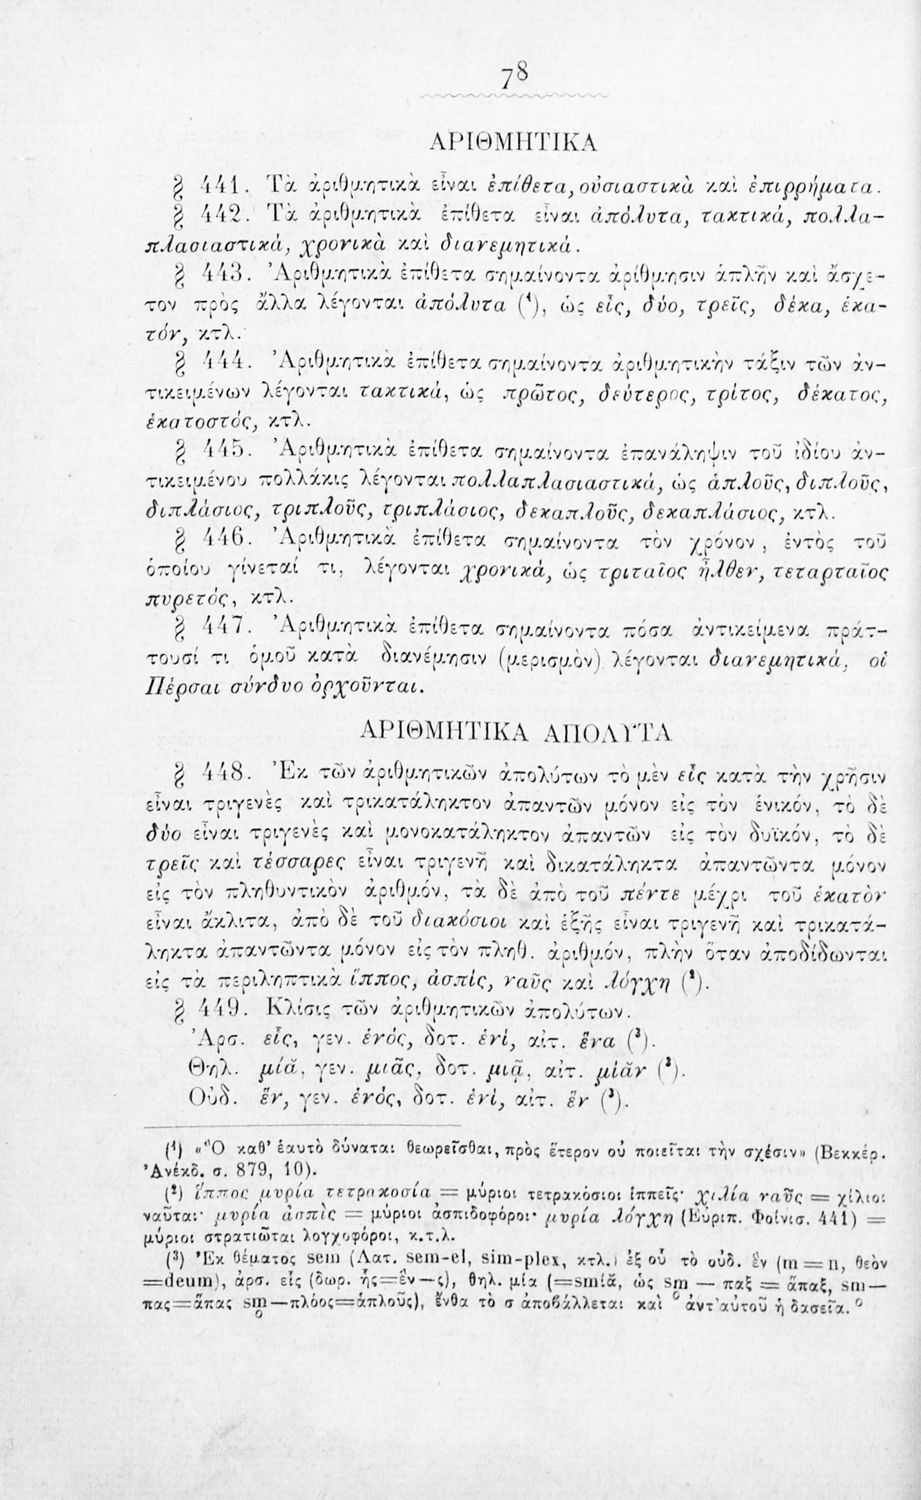 78
ΑΡΙΘΜΗΤΙΚΑ
§ 441. Τὰ ἀριθμητικὰ εἶναι ἐπίθετα, οὐσιαστικὰ καὶ ἐπιρρήματα.
§ 442. Τὰ ἀριθμητικὰ ἐπίθετα εἶναι ἀπόλυτα, τακτικά, πολλα-
πλασιαστικά, χρονικὰ καὶ διανεμητικά.
§ 443. Ἀριθμητικὰ ἐπίθετα σημαίνοντα ἀρίθμησιν ἁπλῆν καὶ ἄσχε-
τον πρὸς ἄλλα λέγονται ἀπόλυτα (¹), ὡς εἷς, δύο, τρεῖς, δέκα, ἑκα-
τόν, κτλ.
§ 444. Ἀριθμητικὰ ἐπίθετα σημαίνοντα ἀριθμητικὴν τάξιν τῶν ἀν-
τικειμένων λέγονται τακτικά, ὡς πρῶτος, δεύτερος, τρίτος, δέκατος,
ἑκατοστός, κτλ.
§ 445. Ἀριθμητικὰ ἐπίθετα σημαίνοντα ἐπανάληψιν τοῦ ἰδίου ἀν-
τικειμένου πολλάκις λέγονται πολλαπλασιαστικά, ὡς ἁπλοῦς, διπλοῦς,
διπλάσιος, τριπλοῦς, τριπλάσιος, δεκαπλοῦς, δεκαπλάσιος, κτλ.
§ 446. Ἀριθμητικὰ ἐπίθετα σημαίνοντα τὸν χρόνον, ἐντὸς τοῦ
ὁποίου γίνεταί τι, λέγονται χρονικά, ὡς τριταῖος ἦλθεν, τεταρταῖος
πυρετός, κτλ.
§ 447. Ἀριθμητικὰ ἐπίθετα σημαίνοντα πόσα ἀντικείμενα πράτ-
τουσί τι ὁμοῦ κατὰ διανέμησιν (μερισμὸν) λέγονται διανεμητικά, οἱ
Πέρσαι σύνδυο ὀρχοῦνται.
ΑΡΙΘΜΗΤΙΚΑ ΑΠΟΛΥΤΑ
§ 448. Ἐκ τῶν ἀριθμητικῶν ἀπολύτων τὸ μὲν εἷς κατὰ τὴν χρῆσιν
εἶναι τριγενὲς καὶ τρικατάληκτον ἀπαντῶν μόνον εἰς τὸν ἑνικόν, τὸ δὲ
δύο εἶναι τριγενὲς καὶ μονοκατάληκτον ἀπαντῶν εἰς τὸν δυϊκόν, τὸ δὲ
τρεῖς καὶ τέσσαρες εἶναι τριγενῆ καὶ δικατάληκτα ἀπαντῶντα μόνον
εἰς τὸν πληθυντικὸν ἀριθμόν, τὰ δὲ ἀπὸ τοῦ πέντε μέχρι τοῦ ἑκατὸν
εἶναι ἄκλιτα, ἀπὸ δὲ τοῦ διακόσιοι καὶ ἑξῆς εἶναι τριγενῆ καὶ τρικατά-
ληκτα ἀπαντῶντα μόνον εἰς τὸν πληθ. ἀριθμόν, πλὴν ὅταν ἀποδίδωνται
εἰς τὰ περιληπτικὰ ἵππος, ἀσπίς, ναῦς καὶ λόγχη (²).
§ 449. Κλίσις τῶν ἀριθμητικῶν ἀπολύτων.
Ἀρσ. εἷς, γεν. ἑνός, δοτ. ἑνί, αἰτ. ἕνα (³).
Θηλ. μίᾰ, γεν. μιᾶς, δοτ. μιᾷ, αἰτ. μίᾰν (³).
Οὐδ. ἕν, γεν. ἑνός, δοτ. ἑνί, αἰτ. ἕν (³).
(¹) «Ὃ καθ' ἑαυτὸ δύναται θεωρεῖσθαι, πρὸς ἕτερον οὐ ποιεῖται τὴν σχέσιν» (Βεκκέρ.
Ἀνέκδ. σ. 879, 10).
(²) ἵππος μυρία τετρακοσία = μύριοι τετρακόσιοι ἱππεῖς· χιλία ναῦς = χίλιοι
ναῦται· μυρία ἀσπὶς = μύριοι ἀσπιδοφόροι· μυρία λόγχη (Εὐριπ. Φοίνισ. 441) =
μύριοι στρατιῶται λογχοφόροι, κ.τ.λ.
(³) Ἐκ θέματος sem (Λατ. sem-el, sim-plex, κτλ.) ἐξ οὗ τὸ οὐδ. ἓν (m = n, θεὸν
=deum), ἀρσ. εἷς (δωρ. ἧς=ἓν—ς), θηλ. μία (=smίᾰ, ὡς sm — παξ = ἅπαξ, sm—
πας=ἅπας sm—πλόος=ἁπλοῦς), ἔνθα τὸ σ ἀποβάλλεται καὶ ἀντ' αὐτοῦ ἡ δασεῖα.